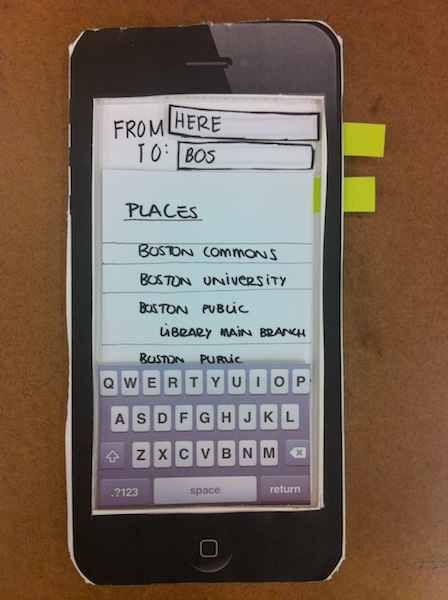 FROM HERE
TO: BOS
PLACES
BOSTON COMMONS
BOSTON UNIVERSITY
BOSTON PUBLIC
LIBRARY MAIN BRANCH
BOSTON PUBLIC
Q W E R T Y U I O P
A S D F G H J K L
Z X C V B N M
.?123 space return